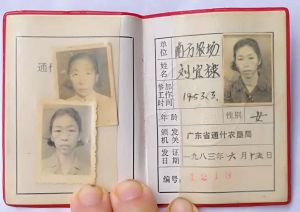 通什
单位 南方农场
姓名 刘宜棣
参加工作时间 1953.3.
年龄 性别 女
颁发机关 广东省通什农垦局
发证日期 一九八三年六月十五日
编号: 1213